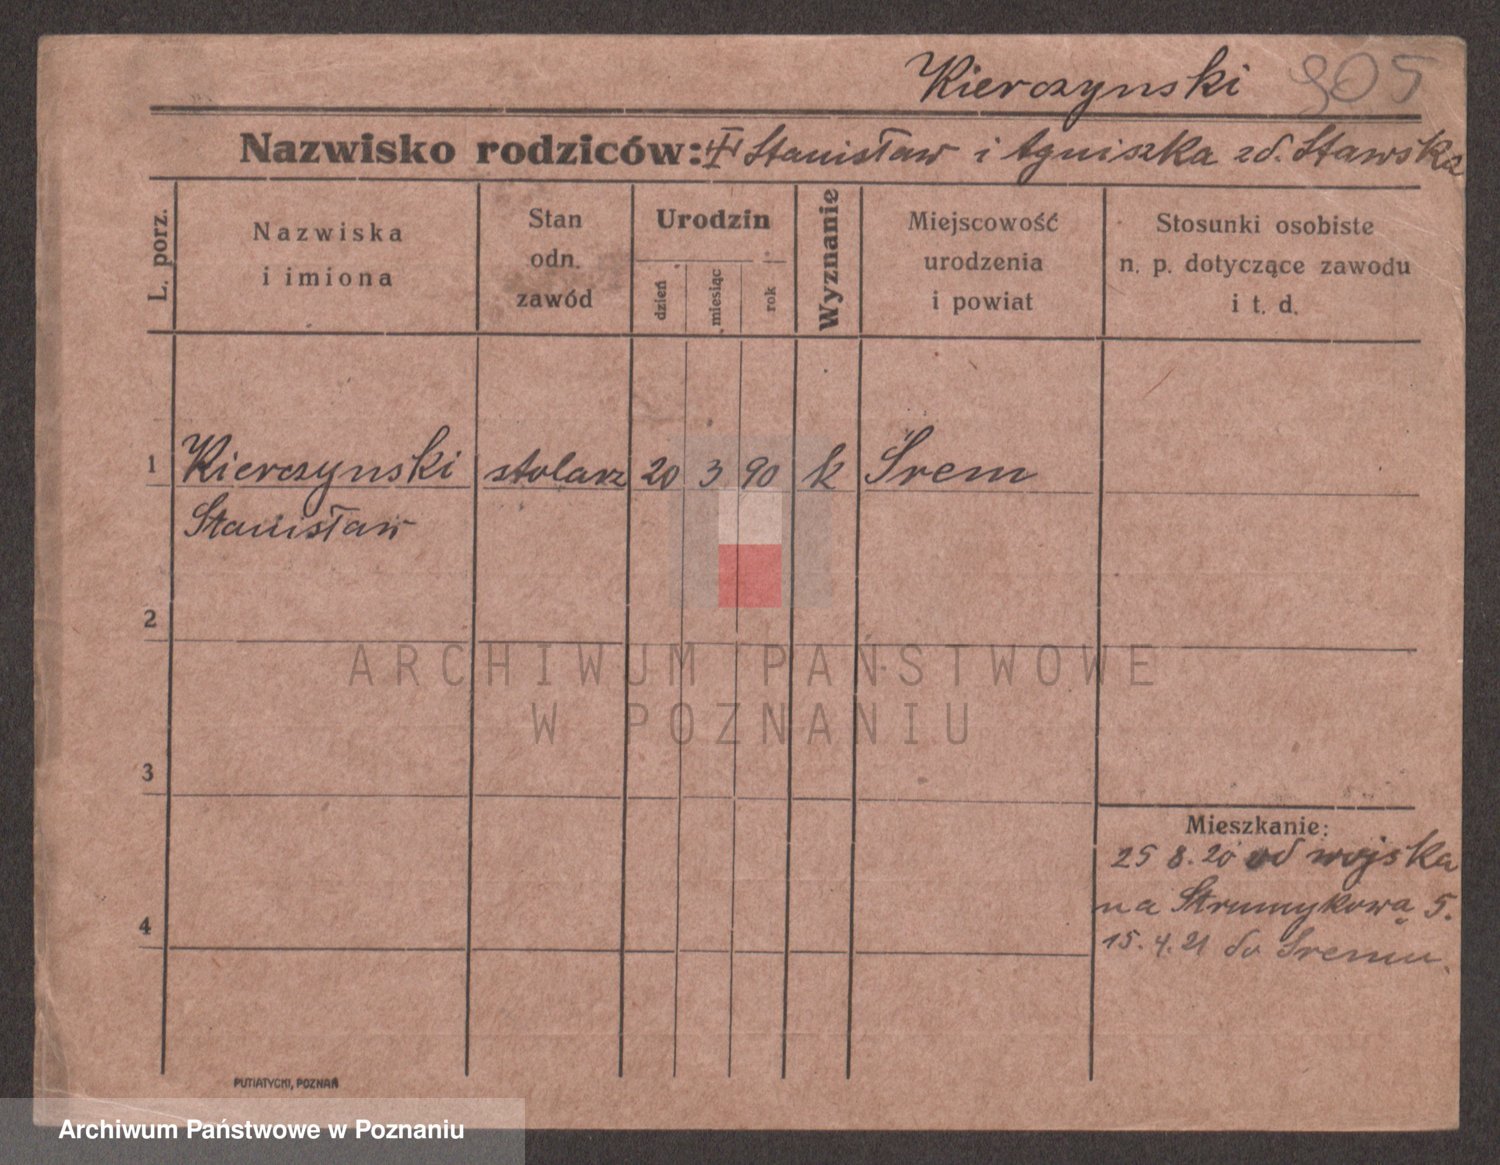 Kierczynski 905
Nazwisko rodziców: Stanisław i Agniszka zd. Stawska
L. porz.
Nazwiska
i imiona
Stan
odn.
zawód
Urodzin
dzień
miesiąc
rok
Wyznanie
Miejscowość
urodzenia
i powiat
Stosunki osobiste
n. p. dotyczące zawodu
i t. d.
1 Kierczynski stolarz 20 3 90 k Śrem
Stanisław
2
ARCHIWUM PAŃSTWOWE
W POZNANIU
3
Mieszkanie:
25 8. 20 od wojska
4 na Strumykową 5.
15. 4. 21 do Śremu.
PUTIATYCKI, POZNAŃ
Archiwum Państwowe w Poznaniu